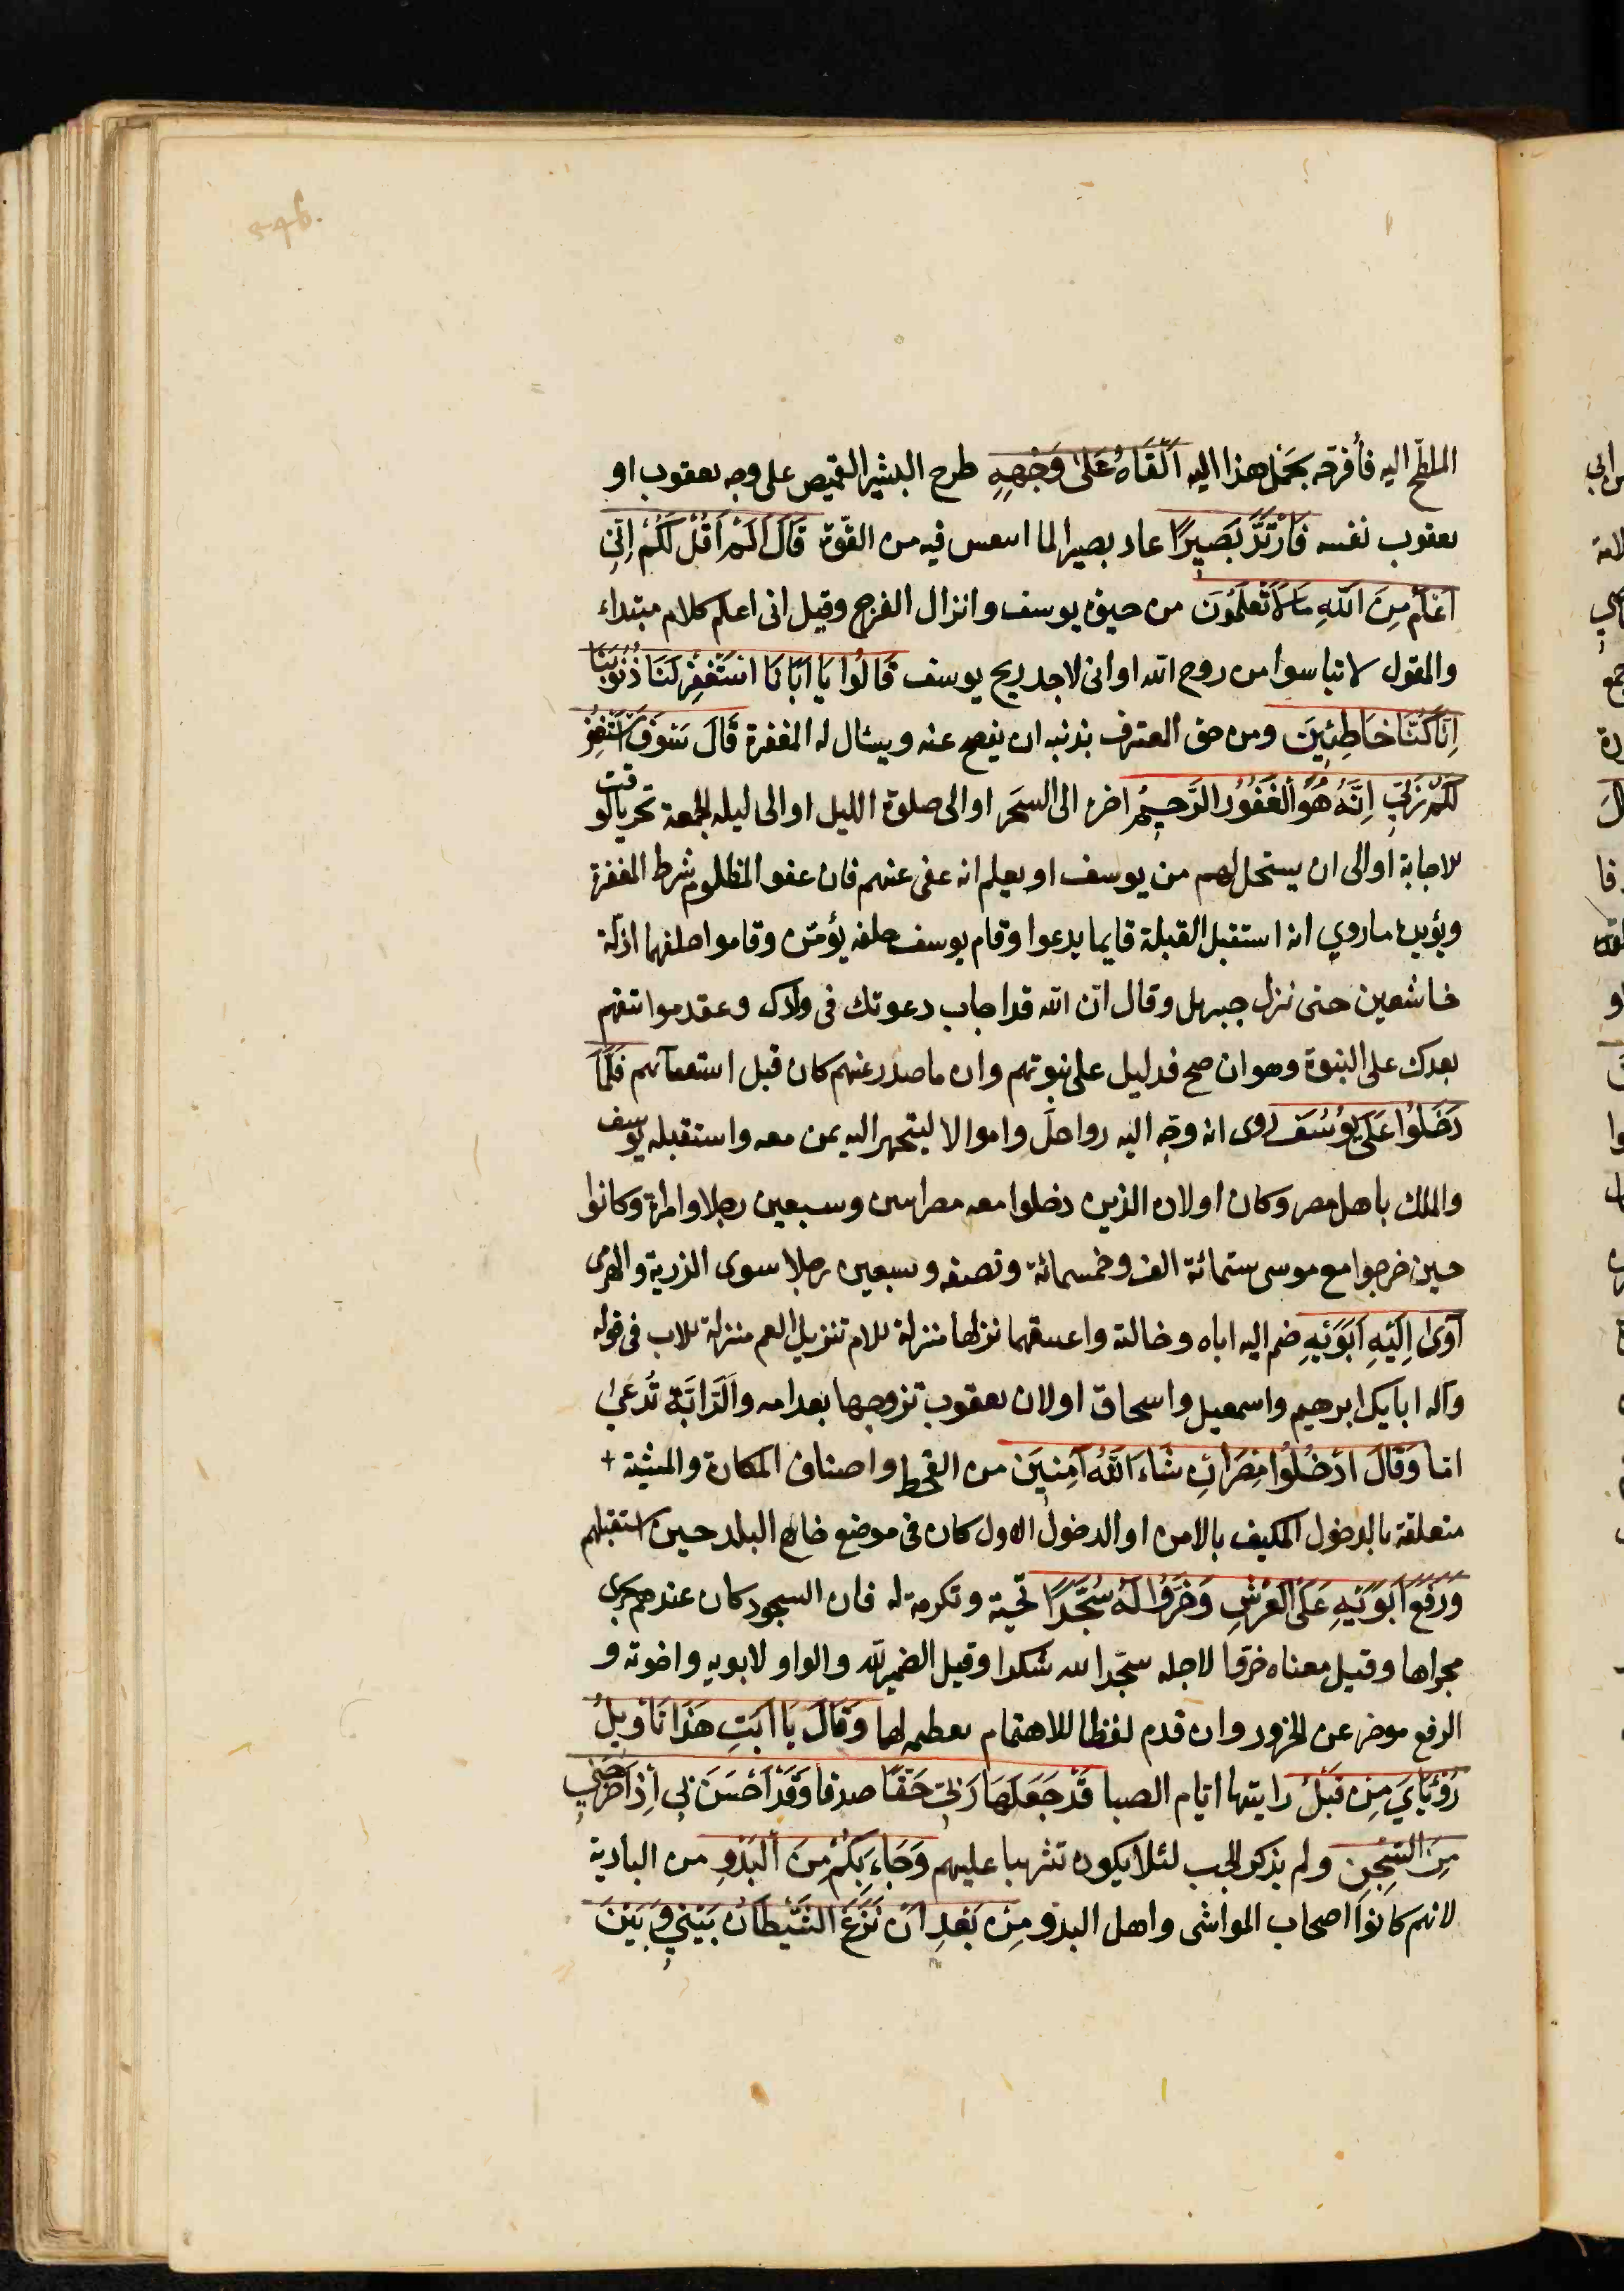 الملطخ اليه فأفرحه بحمل هذا اليه اَلْقَاهُ عَلىٰ وَجْهِهِ طرح البشير القميص على وجه يعقوب او
يعقوب نفسه فَارْتَدَّ بَصِيرًا عاد بصيرا لما انتعش فيه من القوّة قَالَ اَلَمْ اَقُلْ لَكُمْ اِنّي
اَعْلَمُ مِنَ اللّٰهِ مَا لَا تَعْلَمُونَ من حيوة يوسف وانزال الفرج وقيل انى اعلم كلام مبتداء
والقول لا تياسوا من روح الله او انى لاجد ريح يوسف قَالُوا يَا اَبَانَا اسْتَغْفِرْ لَنَا ذُنُوبَنَا
اِنَّا كُنَّا خَاطِئِينَ ومن حق المعترف بذنبه ان يصفح عنه ويسال له المغفرة قَالَ سَوْفَ اَسْتَغْفِرُ
لَكُمْ رَبّي اِنَّهُ هُوَ الْغَفُورُ الرَّحِيمُ اخره الى السحر او الى صلوة الليل او الى ليله الجمعة تحريا لوقت
للاجابة او الى ان يستحل لهم من يوسف او يعلم انه عفى عنهم فان عفو المظلوم شرط المغفرة
ويؤيده ما روي انه استقبل القبلة قايما يدعوا وقام يوسف خلفه يؤمّن وقاموا خلفهما اذلّة
خاشعين حتى نزل جبريل وقال انّ الله قد اجاب دعوتك فى ولدك وعقد مواثيقهم
بعدك على النبوة وهو ان صح فدليل على نبوتهم وان ما صدر عنهم كان قبل استنبائهم فَلَمَّا
دَخَلُوا عَلَى يُوسُفَ روى انه وجّه اليه رواحل واموالا ليتجهز اليه بمن معه واستقبله يوسف
والملك باهل مصر وكان اولاده الذين دخلوا معه مصر اثنين وسبعين رجلا وامراة وكانوا
حين خرجوا مع موسى ستمائة الف وخمسمائة وبضعه وسبعين رجلا سوى الذرية والهرمى
آوىٰ اِلَيْهِ اَبَوَيْهِ ضم اليه اباه وخالته واعتنقهما نزلها منزلة للام تنزيل العم منزلة للاب فى قوله
وآله ابايك ابرهيم واسمعيل واسحاق او لان يعقوب تزوجها بعد امه وَالرَّابَّة تُدعىٰ
امّا وَقَالَ ادْخُلُوا مِصْرَ اِنْ شَاءَ اللّٰهُ آمِنِينَ من القحط واصناف المكاره والمشية
متعلقة بالدخول المكيف بالامن او الدخول الاول كان فى موضع خارج البلد حين استقبلهم
وَرَفَعَ اَبَوَيْهِ عَلَى الْعَرْشِ وَخَرُّوا لَهُ سُجَّدًا تحية وتكرمة له فان السجود كان عندهم يجرى
مجراها وقيل معناه خرّوا لاجله سجّدا لله شكرا وقيل الضمير لله والواو لابويه واخوته و
الرفع موخر عن الخرور وان قدم لفظا للاهتمام بتعظيمه لهما وَقَالَ يَا اَبَتِ هَذَا تَأْوِيلُ
رُؤْيَايَ مِنْ قَبْلُ رايتها ايّام الصبا قَدْ جَعَلَهَا رَبّي حَقًّا صدقا وَقَدْ اَحْسَنَ بِي اِذْ اَخْرَجَنِي
مِنَ السِّجْنِ ولم يذكر الجب لئلا يكون تثريبا عليهم وَجَاءَ بِكُمْ مِنَ الْبَدْوِ من البادية
لانهم كانوا اصحاب المواشى واهل البدو مِنْ بَعْدِ اَنْ نَزَغَ الشَّيْطَانُ بَيْنِي وَ بَيْنَ